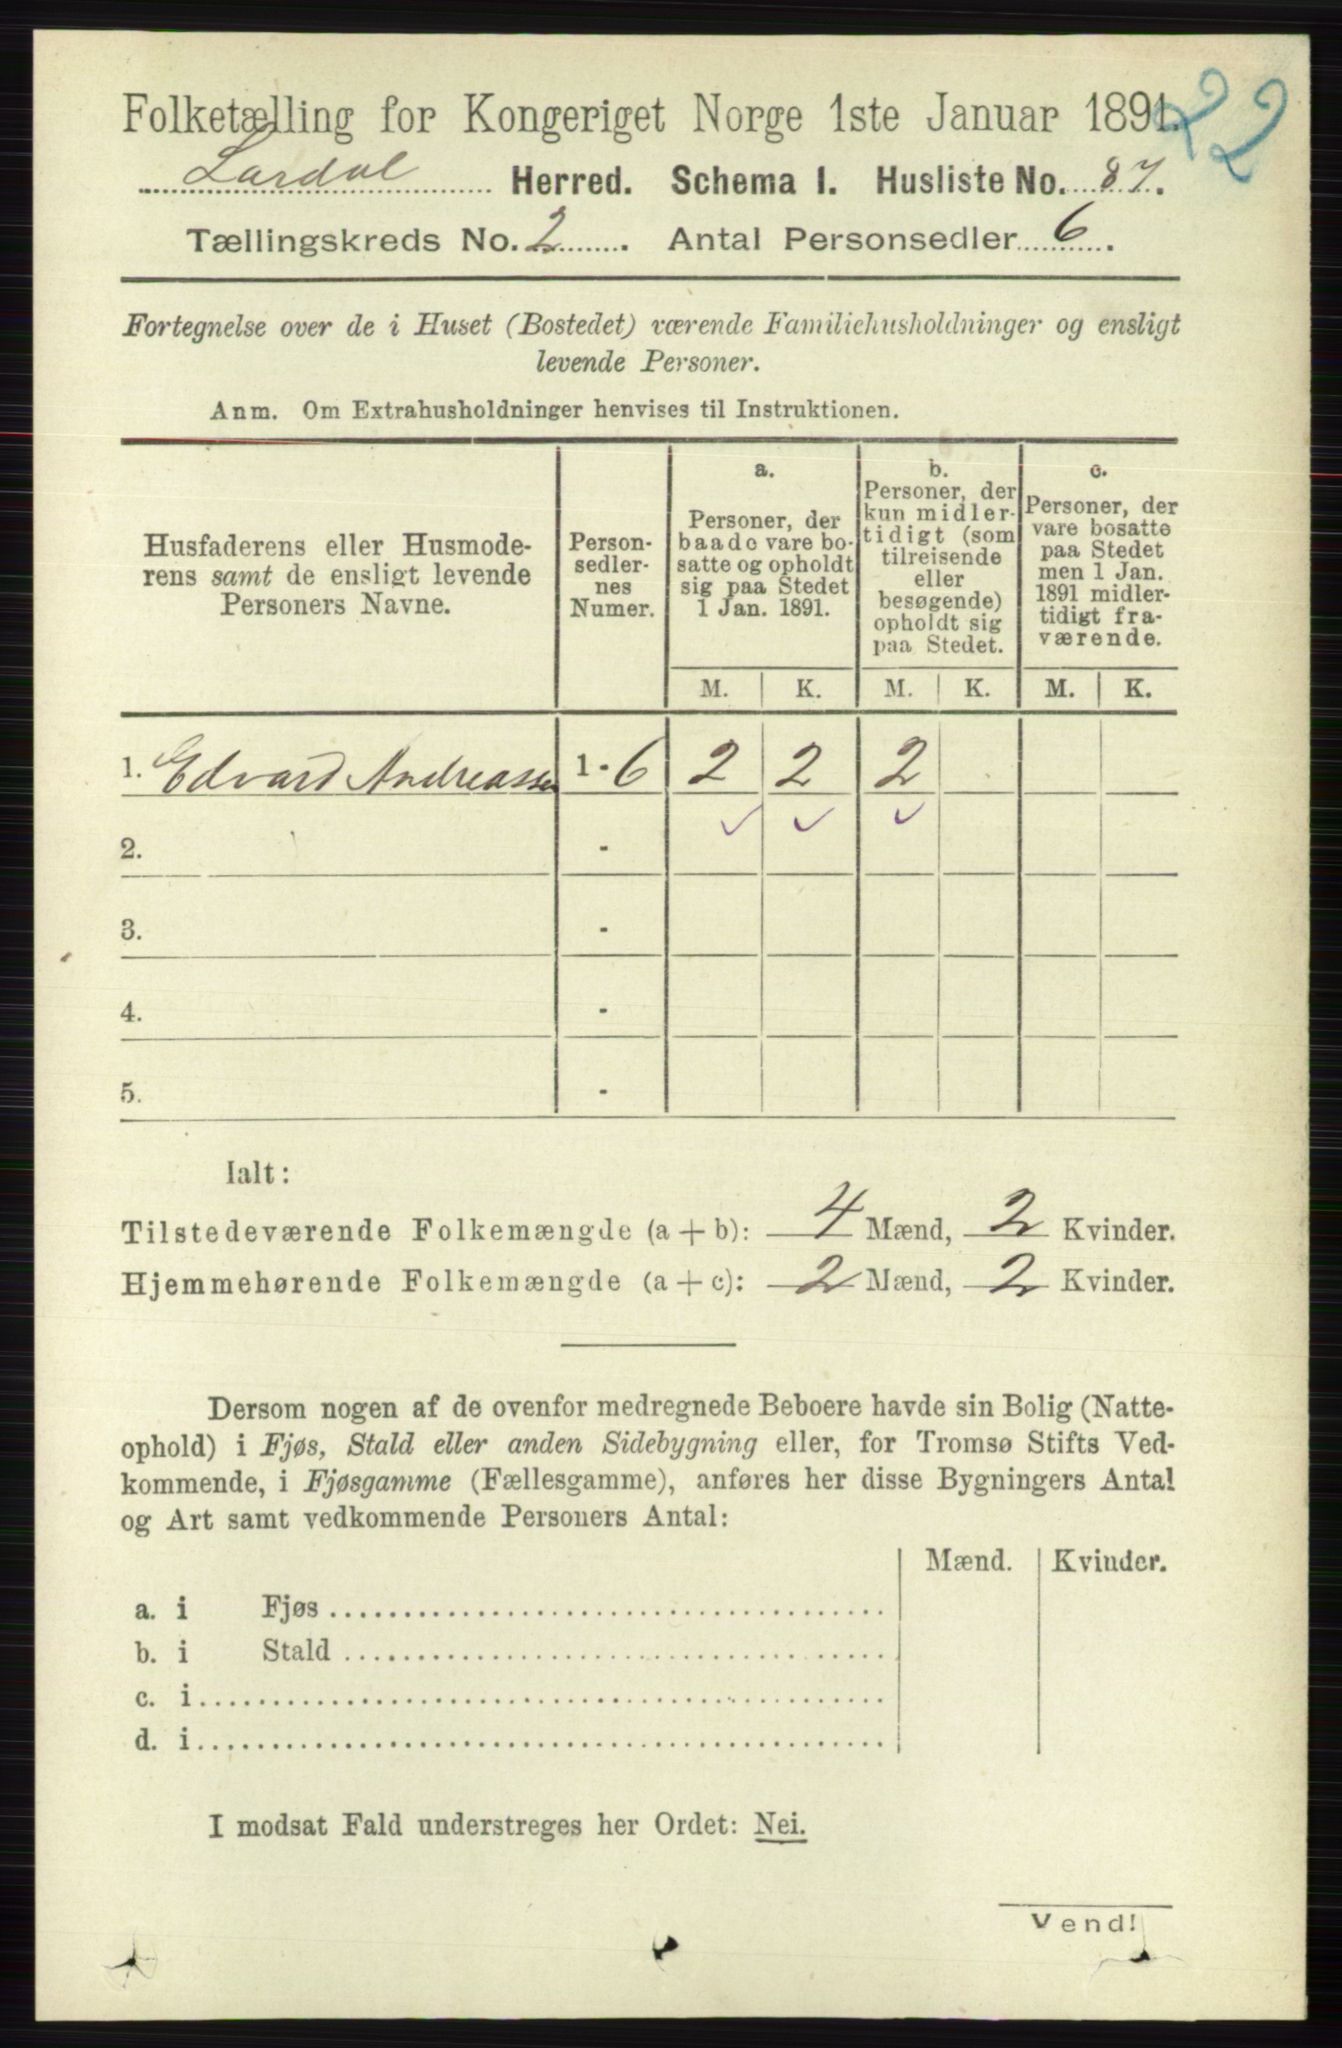 22
Folketælling for Kongeriget Norge 1ste Januar 1891.
Lardal Herred. Schema I. Husliste No. 87.
Tællingskreds No. 2. Antal Personsedler 6.
Fortegnelse over de i Huset (Bostedet) værende Familiehusholdninger og ensligt
levende Personer.
Anm. Om Extrahusholdninger henvises til Instruktionen.
Husfaderens eller Husmode-
rens samt de ensligt levende
Personers Navne.
Person-
sedler-
nes
Numer.
a.
Personer, der
baade vare bo-
satte og opholdt
sig paa Stedet
1 Jan. 1891.
b.
Personer, der
kun midler-
tidigt (som
tilreisende
eller
besøgende)
opholdt sig
paa Stedet.
c.
Personer, der
vare bosatte
paa Stedet
men 1 Jan.
1891 midler-
tidigt fra-
værende.
M. K. M. K. M. K.
1. Edvard Andreassen 1 - 6 2 2 2
2. -
3. -
4. -
5. -
Ialt:
Tilstedeværende Folkemængde (a + b): 4 Mænd, 2 Kvinder.
Hjemmehørende Folkemængde (a + c): 2 Mænd, 2 Kvinder.
Dersom nogen af de ovenfor medregnede Beboere havde sin Bolig (Natte-
ophold) i Fjøs, Stald eller anden Sidebygning eller, for Tromsø Stifts Ved-
kommende, i Fjøsgamme (Fællesgamme), anføres her disse Bygningers Antal
og Art samt vedkommende Personers Antal:
Mænd. Kvinder.
a. i Fjøs
b. i Stald
c. i
d. i
I modsat Fald understreges her Ordet: Nei.
Vend!